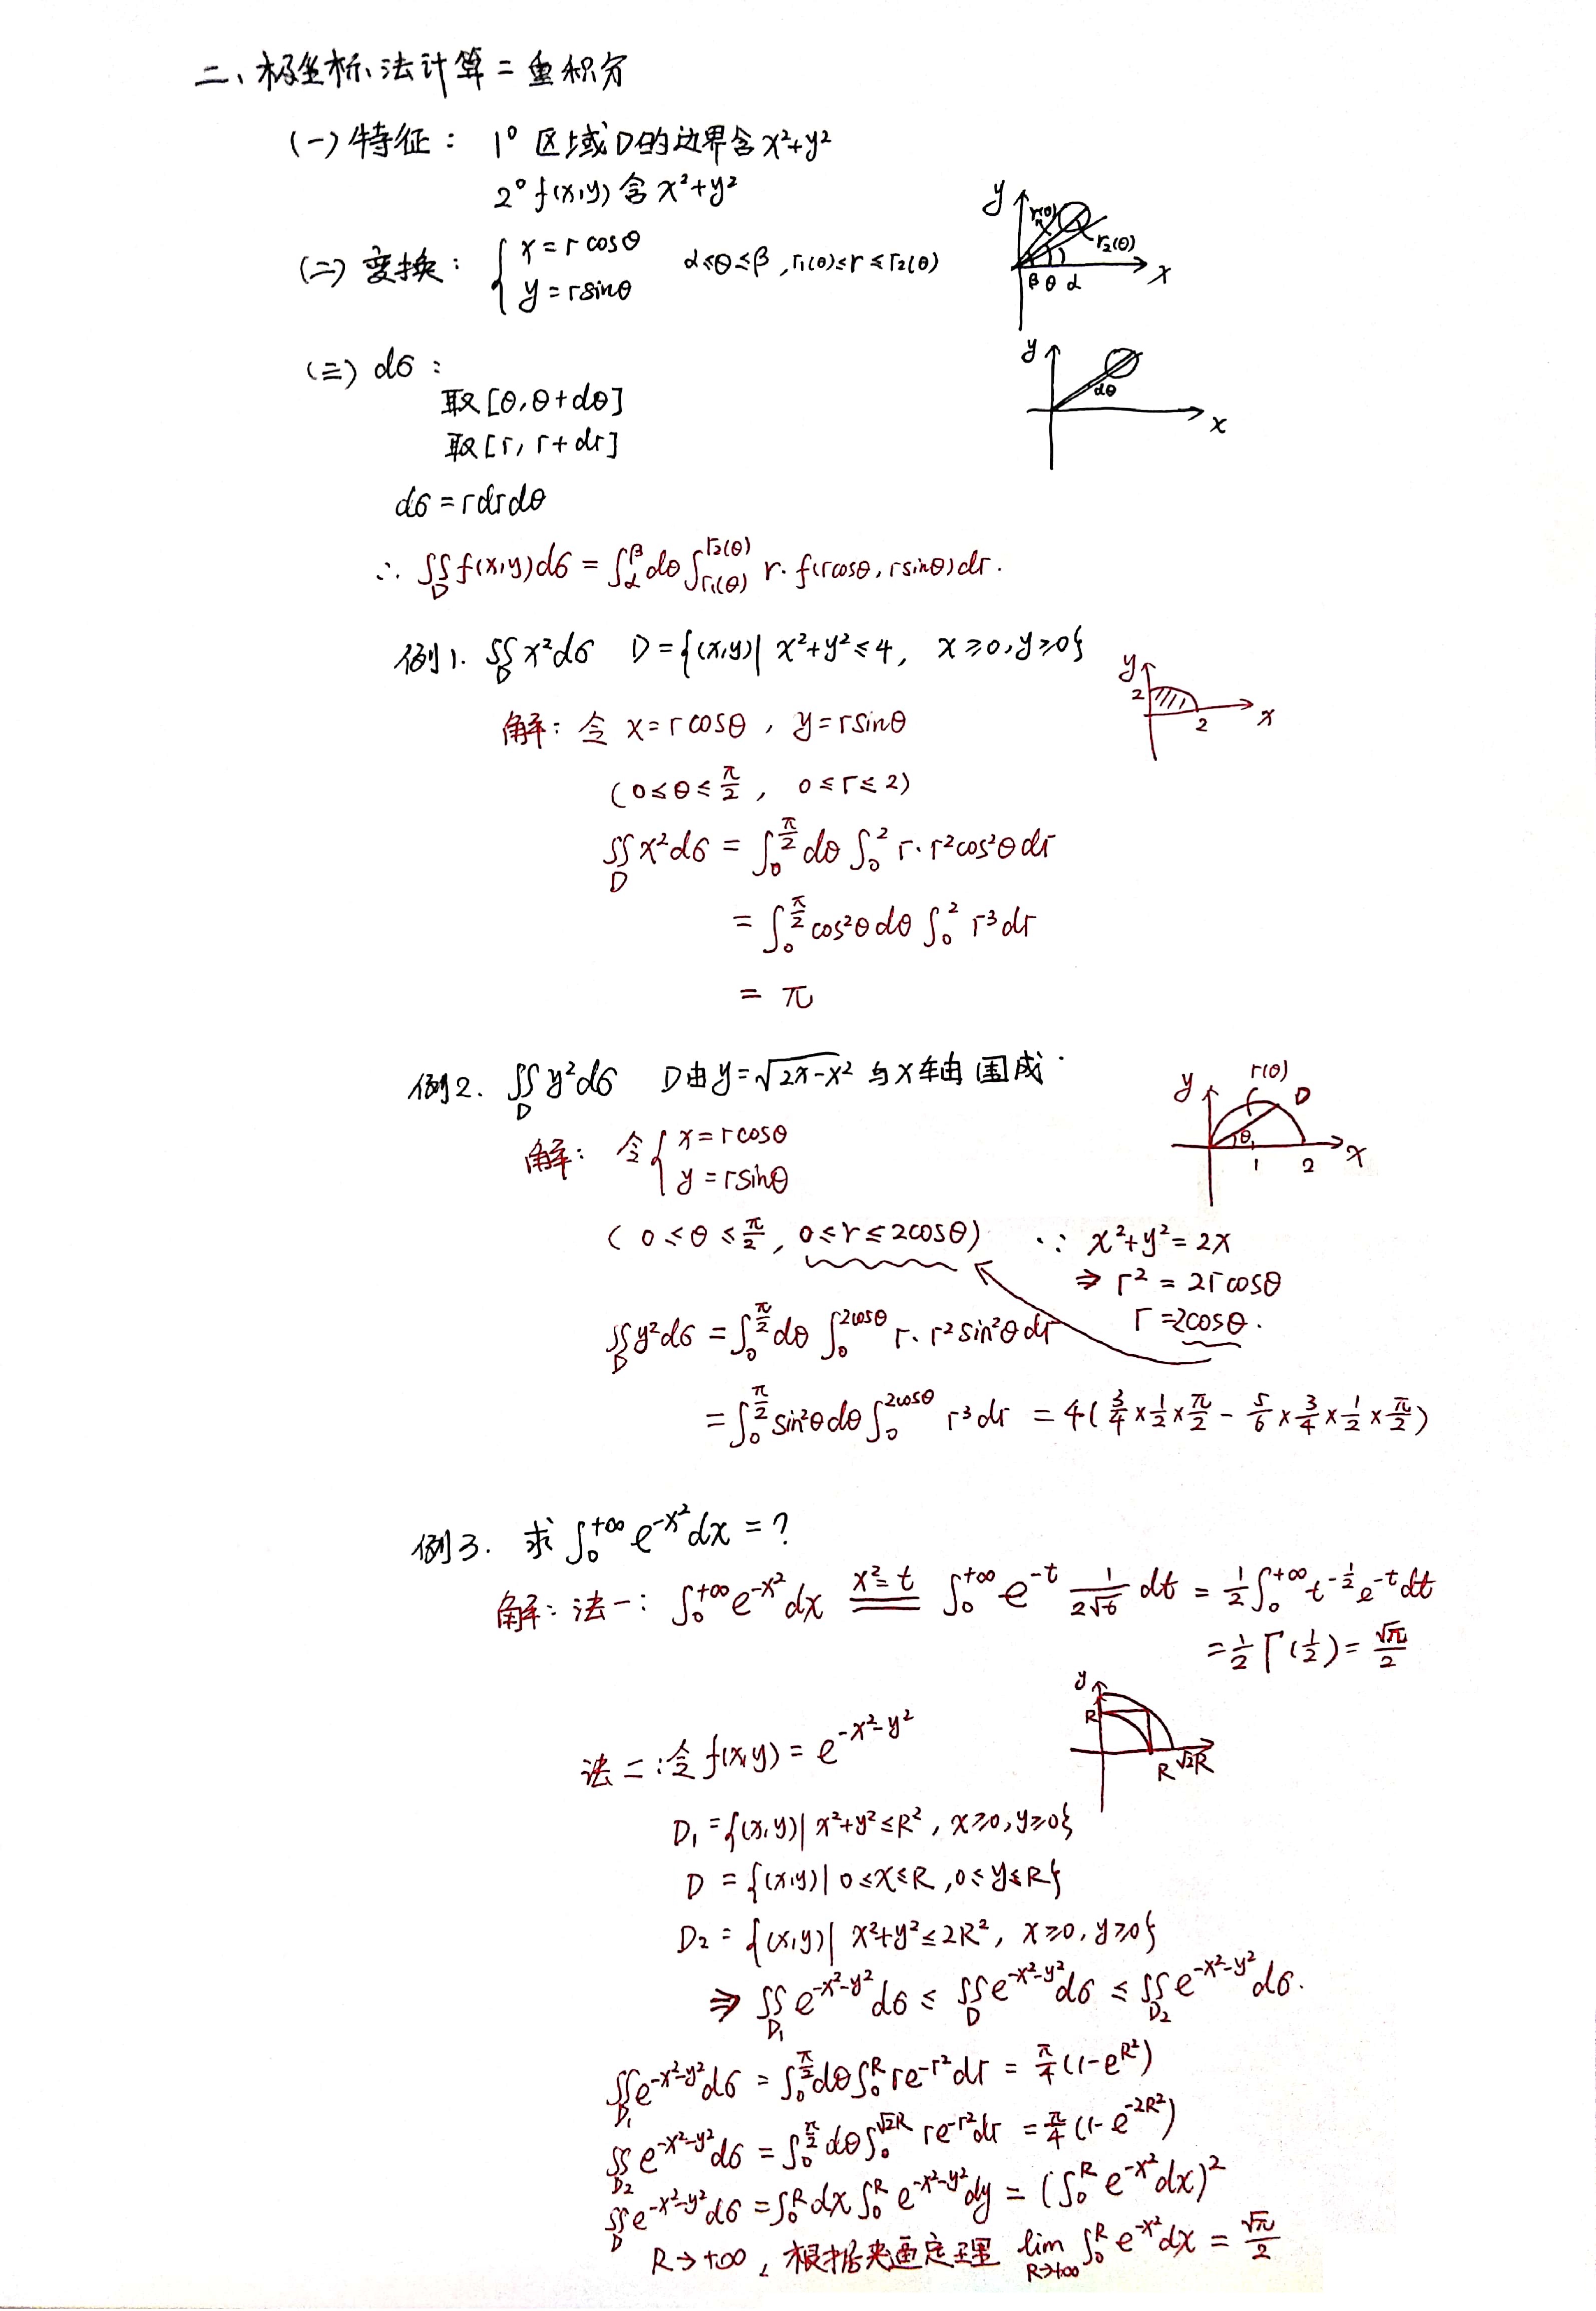 二、极坐标法计算二重积分
(一) 特征： 1° 区域D的边界含 x²+y²
2° f(x,y) 含 x²+y²
(二) 变换： { x = r cosθ  y = r sinθ   α≤θ≤β , r₁(θ)≤r≤r₂(θ)
y r₁(θ) r₂(θ) β θ α x
(三) dσ：
y dθ x
取 [θ, θ+dθ]
取 [r, r+dr]
dσ = r dr dθ
∴ ∬_D f(x,y)dσ = ∫_α^β dθ ∫_{r₁(θ)}^{r₂(θ)} r· f(rcosθ, rsinθ)dr.
例1. ∬_D x²dσ  D={(x,y)| x²+y²≤4, x≥0, y≥0}
y 2 2 x
解：令 x = r cosθ , y = r sinθ
(0≤θ≤π/2 , 0≤r≤2)
∬_D x²dσ = ∫_0^{π/2} dθ ∫_0^2 r· r²cos²θ dr
= ∫_0^{π/2} cos²θ dθ ∫_0^2 r³dr
= π
例2. ∬_D y²dσ  D由 y=√(2x-x²) 与x轴围成
y r(θ) D θ 1 2 x
解：令 { x = r cosθ  y = r sinθ
( 0≤θ≤π/2 , 0≤r≤2cosθ)  ∵ x²+y²=2x
⇒ r² = 2r cosθ
r = 2cosθ.
∬_D y²dσ = ∫_0^{π/2} dθ ∫_0^{2cosθ} r· r²sin²θ dr
= ∫_0^{π/2} sin²θ dθ ∫_0^{2cosθ} r³dr = 4(3/4×1/2×π/2 - 5/6×3/4×1/2×π/2)
例3. 求 ∫_0^{+∞} e^{-x²}dx = ?
解：法一：∫_0^{+∞} e^{-x²}dx ==(x²=t)== ∫_0^{+∞} e^{-t} 1/(2√t) dt = 1/2 ∫_0^{+∞} t^{-1/2} e^{-t}dt
= 1/2 Γ(1/2) = √π/2
y R R √2R
法二：令 f(x,y) = e^{-x²-y²}
D₁ = {(x,y)| x²+y²≤R², x≥0, y≥0}
D = {(x,y)| 0≤x≤R, 0≤y≤R}
D₂ = {(x,y)| x²+y²≤2R², x≥0, y≥0}
⇒ ∬_{D₁} e^{-x²-y²}dσ ≤ ∬_D e^{-x²-y²}dσ ≤ ∬_{D₂} e^{-x²-y²}dσ.
∬_{D₁} e^{-x²-y²}dσ = ∫_0^{π/2} dθ ∫_0^R re^{-r²}dr = π/4 (1-e^{R²})
∬_{D₂} e^{-x²-y²}dσ = ∫_0^{π/2} dθ ∫_0^{√2R} re^{-r²}dr = π/4 (1-e^{-2R²})
∬_D e^{-x²-y²}dσ = ∫_0^R dx ∫_0^R e^{-x²-y²}dy = (∫_0^R e^{-x²}dx)²
R→+∞ , 根据夹逼定理 lim_{R→+∞} ∫_0^R e^{-x²}dx = √π/2